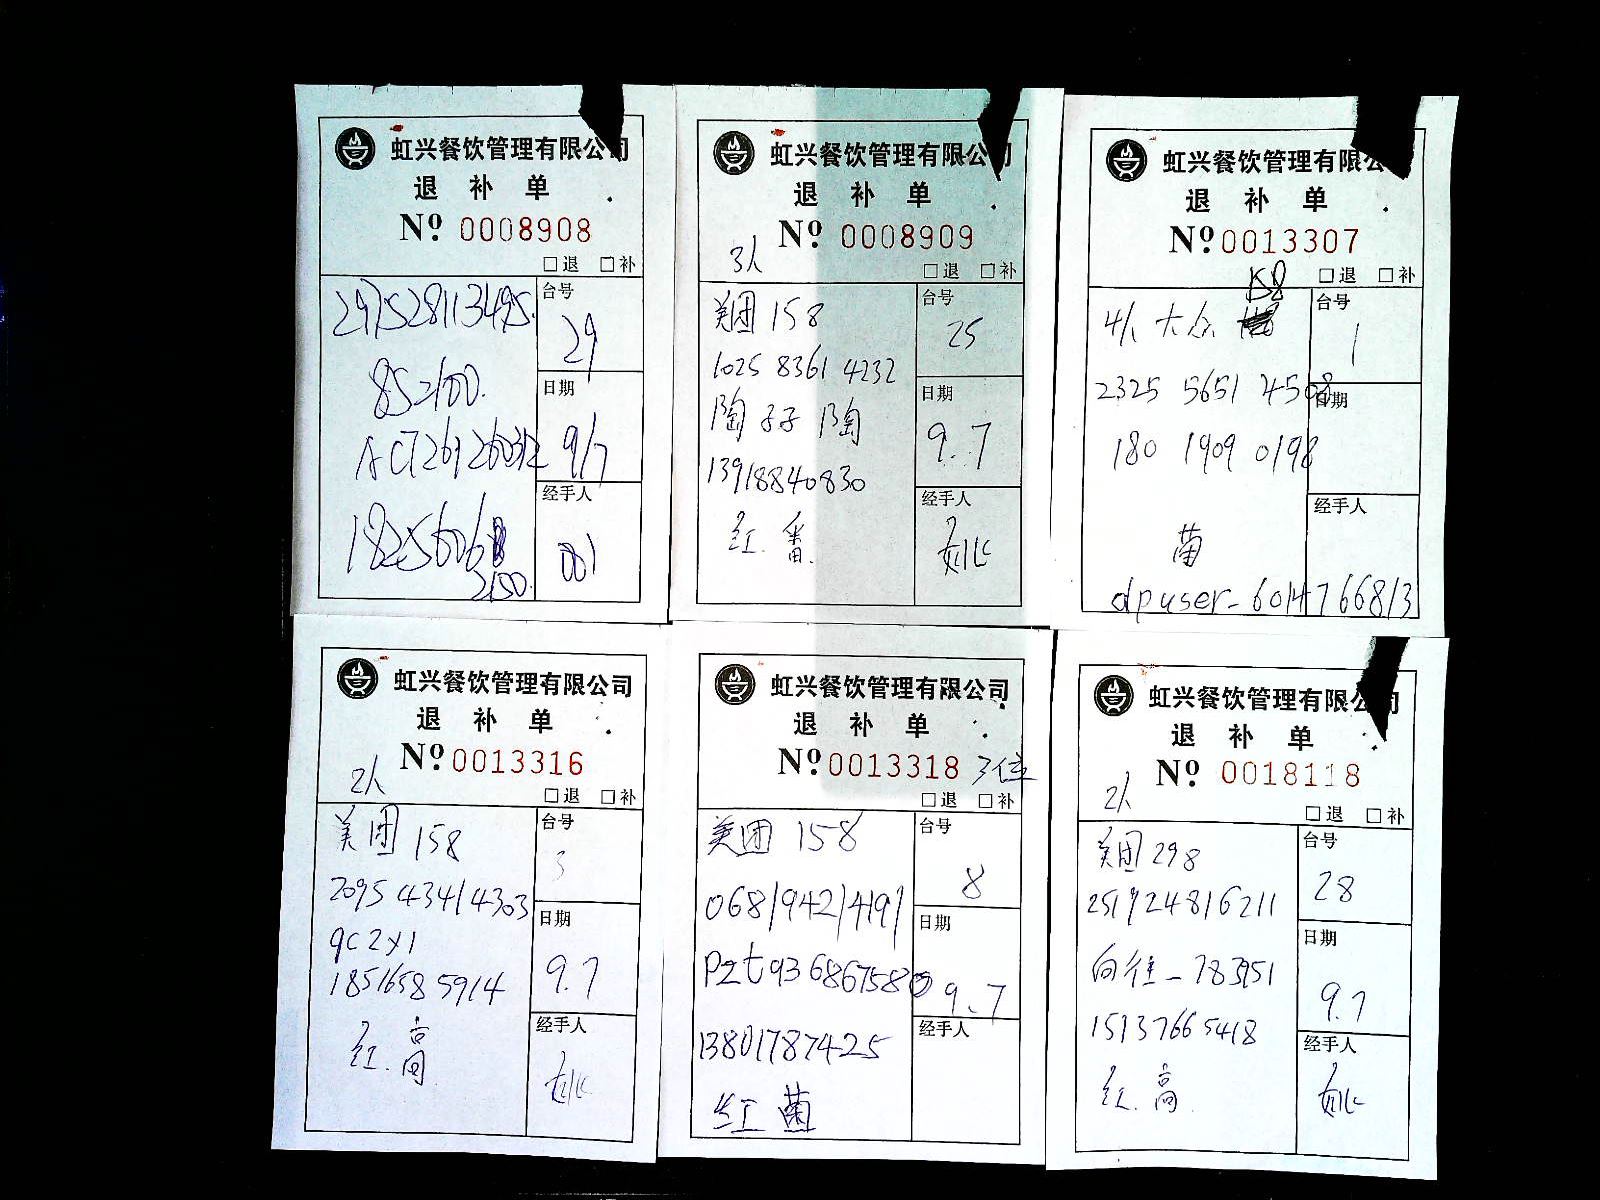 虹兴餐饮管理有限公司
退 补 单
Nº 0008908
□退 □补
297528113495.
852100.
ACT269126032
台号
29
日期
9/7
经手人
001
虹兴餐饮管理有限公司
退 补 单
3人 Nº 0008909
□退 □补
美团 158
1025 8361 4232
陶子子陶
13918840830
红.番.
台号
25
日期
9.7
经手人
虹兴餐饮管理有限公
退 补 单
Nº 0013307
□退 □补
4人 大众
2325 5651 4508
180 1909 0198
菌
dpuser-6014766813
台号
1
日期
经手人
虹兴餐饮管理有限公司
退 补 单
2人 Nº 0013316
□退 □补
美团 158
2095 4341 4303
qc2y1
18516585914
红.高
台号
3
日期
9.7
经手人
虹兴餐饮管理有限公司
退 补 单
Nº 0013318 3位
□退 □补
美团 158
068194214191
pzt936867580
13801787425
红菌
台号
8
日期
9.7
经手人
虹兴餐饮管理有限公司
退 补 单
2人 Nº 0018118
□退 □补
美团 298
251924816211
向往-783951
15137665418
红.高
台号
28
日期
9.7
经手人